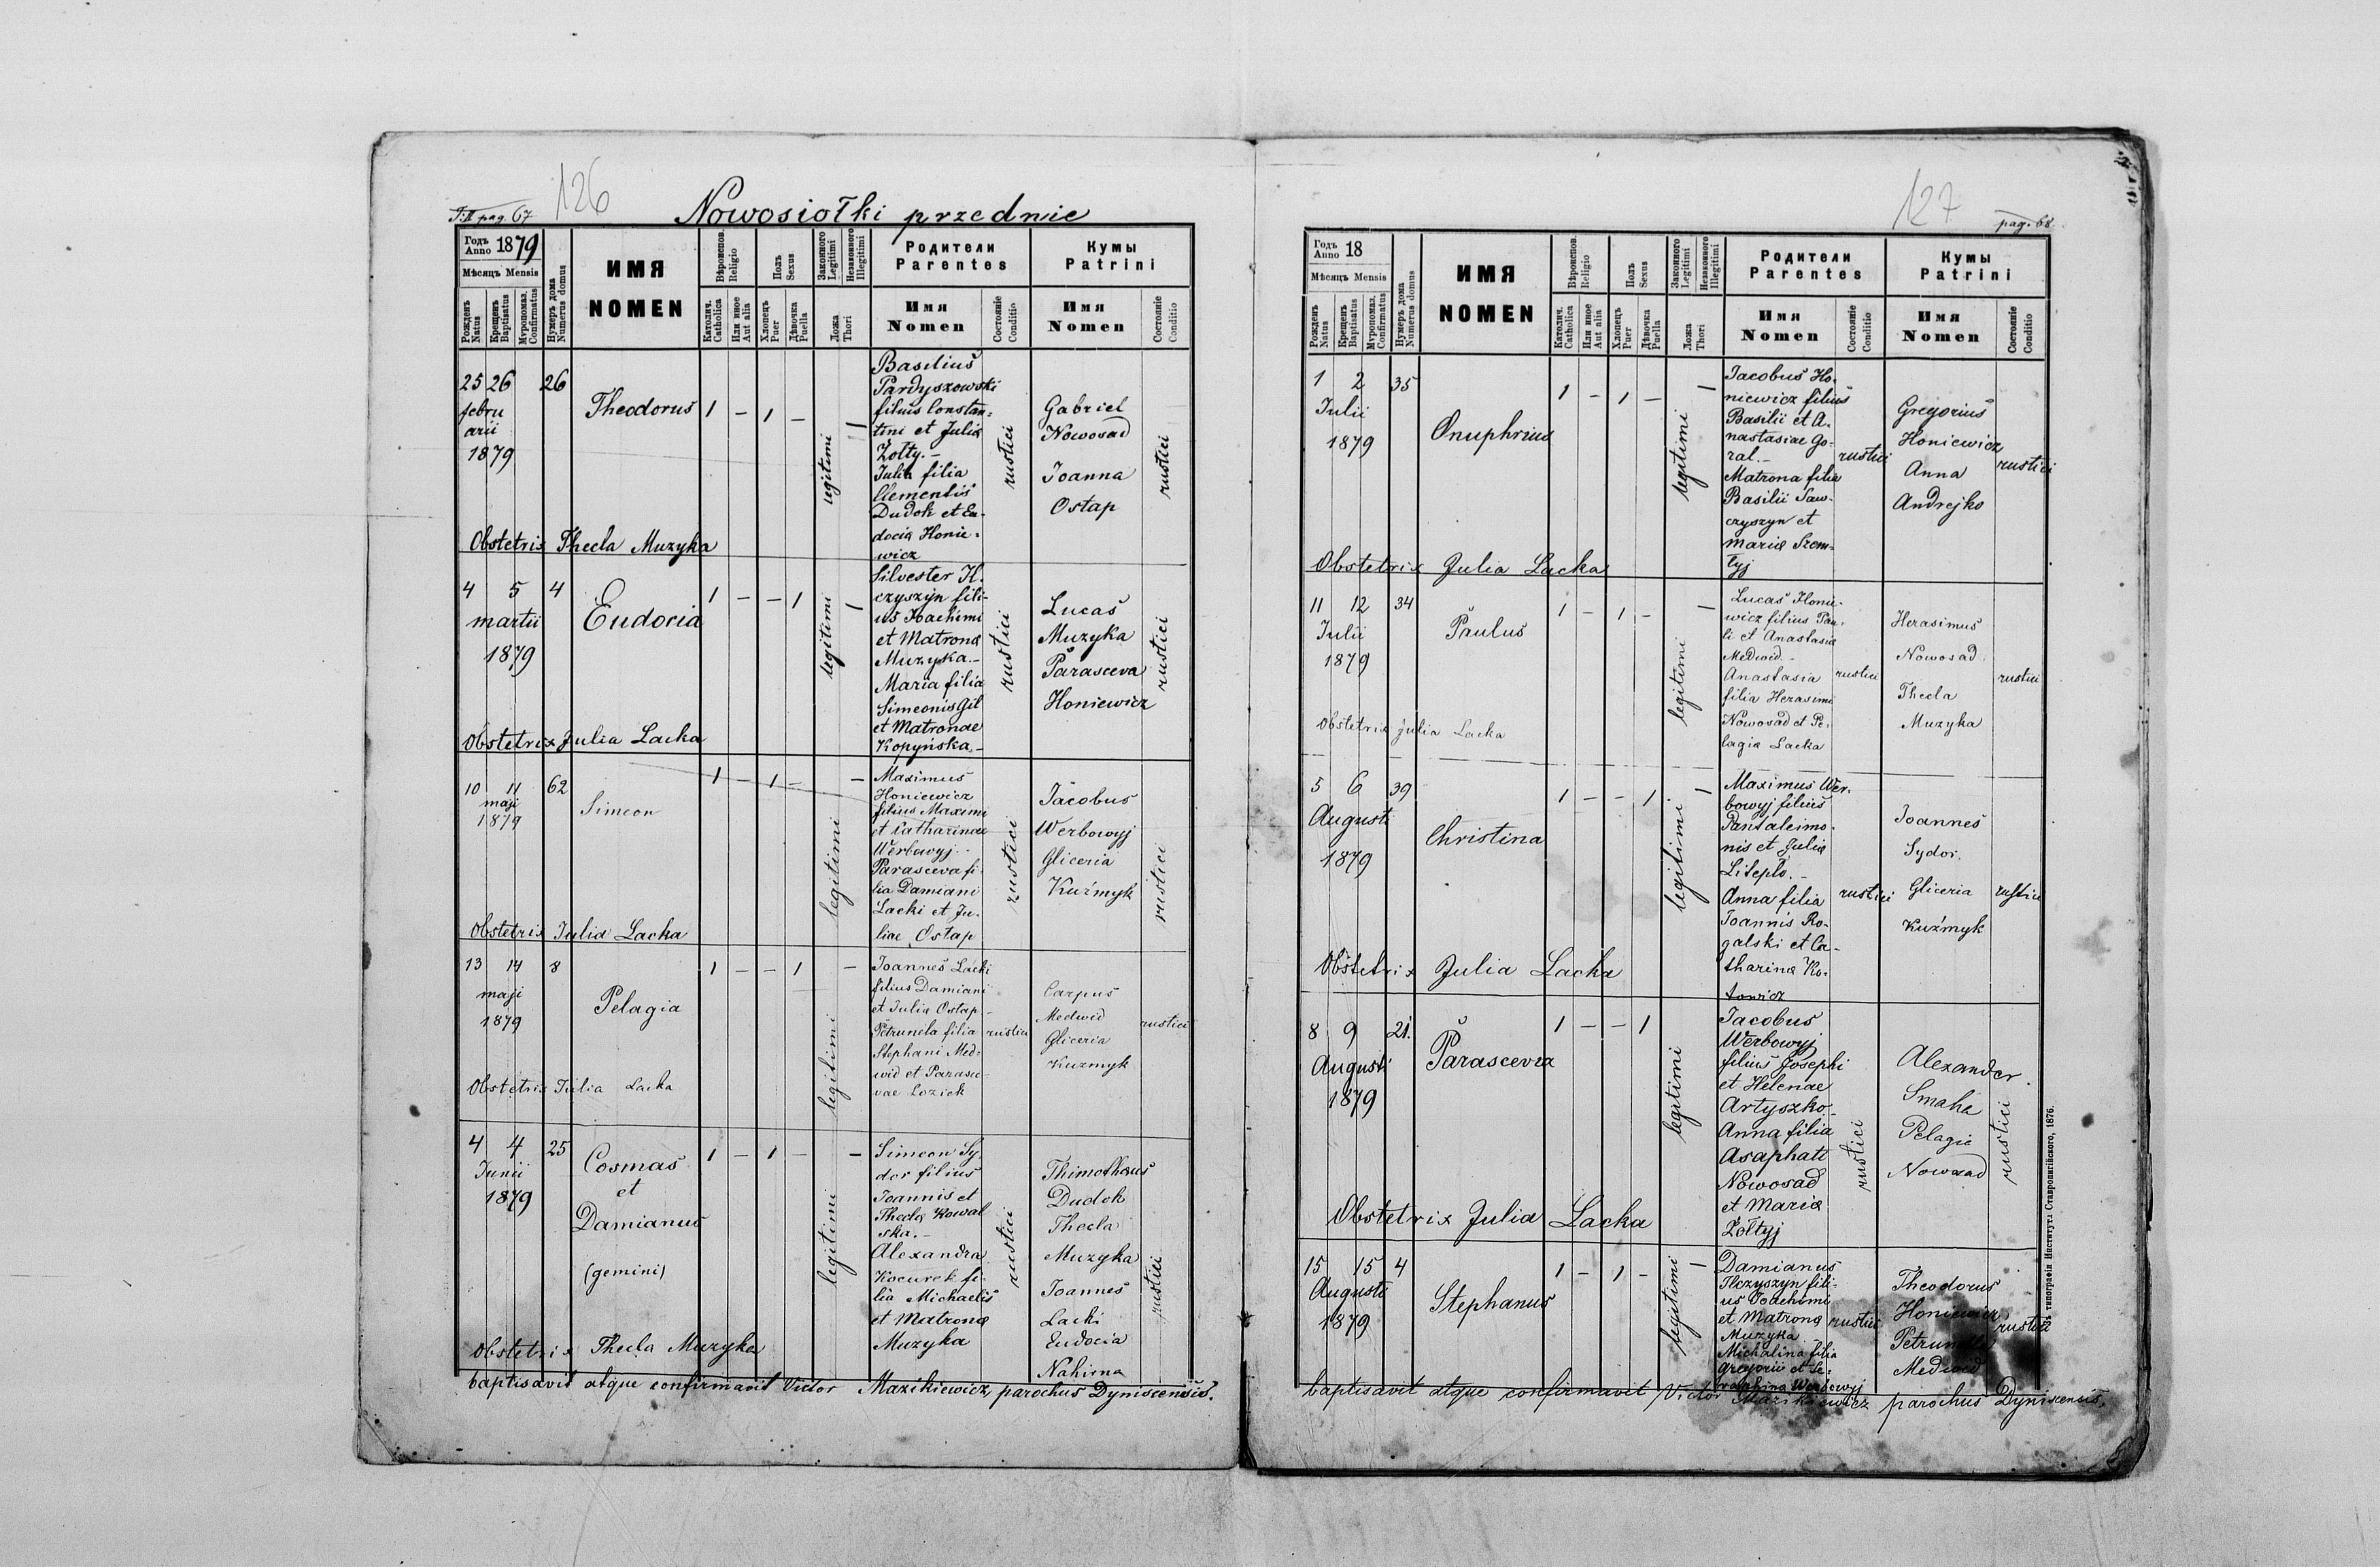 T. II pag. 67
126
Nowosiołki przednie
Годъ Anno 1879
Мѣсяцъ Mensis
Рожденъ Natus
Крещенъ Baptisatus
Муропомаз. Confirmatus
Нумеръ дома Numerus domus
ИМЯ
NOMEN
Вѣроиспов. Religio
Католич. Catholica
Или иное Aut alia
Полъ Sexus
Хлопецъ Puer
Дѣвочка Puella
Законного Legitimi
Незаконного Illegitimi
Ложа Thori
Родители
Parentes
Имя
Nomen
Состояніе Conditio
Кумы
Patrini
Имя
Nomen
Состояніе Conditio
25 26 26
febru
arii
1879
Theodorus
1 – 1 –
legitimi
Basilius
Pardyszowski
filius Constan=
tini et Julia
Żołty.–
Julia filia
Clementis
Dudok et Eu-
docia Honie=
wicz
rustici
Gabriel
Nowosad
Joanna
Ostap
rustici
Obstetrix Thecla Muzyka
4 5 4
martii
1879
Eudocia
1 – – 1
legitimi
Silvester
czyszyn fili-
us Joachimi
et Matrona
Muzyka.–
Maria filia
Simeonis Gil
et Matronae
Kopyńska.–
rustici
Lucas
Muzyka
Parasceva
Honiewicz
rustici
Obstetrix Julia Lacka
10 11 62
maji
1879
Simeon
1 – 1 –
legitimi
Maximus
Honiewicz
filius Maximi
et Catharinae
Werbowyj.–
Parasceva fi-
lia Damiani
Lacki et Ju-
liae Ostap
rustici
Jacobus
Werbowyj
Gliceria
Kuźmyk
rustici
Obstetrix Julia Lacka
13 14 8
maji
1879
Pelagia
1 – – 1
legitimi
Joannes Lacki
filius Damiani
et Julia Ostap –
Petrunela filia
Stephani Med-
wid et Parasce-
vae Łozick
rustici
Carpus
Medwid
Gliceria
Kuzmyk
rustici
Obstetrix Julia Lacka
4 4 25
Junii
1879
Cosmas
et
Damianus
(gemini)
1 – 1 –
legitimi
Simeon Sy-
dor filius
Joannis et
Thecla Kowal
ska.–
Alexandra
Kocurek fi-
lia Michaelis
et Matrona
Muzyka
rustici
Thimotheus
Dudok
Thecla
Muzyka
Joannes
Lacki
Eudocia
Nahirna
rustici
Obstetrix Thecla Muzyka
baptisavit atque confirmavit Victor Mazikiewicz, parochus Dyniscensis.
127
pag. 68
Годъ Anno 18
Мѣсяцъ Mensis
Рожденъ Natus
Крещенъ Baptisatus
Муропомаз. Confirmatus
Нумеръ дома Numerus domus
ИМЯ
NOMEN
Вѣроиспов. Religio
Католич. Catholica
Или иное Aut alia
Полъ Sexus
Хлопецъ Puer
Дѣвочка Puella
Законного Legitimi
Незаконного Illegitimi
Ложа Thori
Родители
Parentes
Имя
Nomen
Состояніе Conditio
Кумы
Patrini
Имя
Nomen
Состояніе Conditio
1 2 35
Julii
1879
Onuphrius
1 – 1 –
legitimi
Jacobus Ho-
niewicz filius
Basilii et A-
nastasiae Go-
ral.–
Matrona filia
Basilii Saw-
czyszyn et
Maria Szem-
łyj
rustici
Gregorius
Honiewicz
Anna
Andrejko
rustici
Obstetrix Julia Lacka
11 12 34
Julii
1879
Paulus
1 – 1 –
legitimi
Lucas Honie-
wicz filius Pau-
li et Anastasia
Medwid.–
Anastasia
filia Herasimi
Nowosad et Pe-
lagia Lacka
rustici
Herasimus
Nowosad
Thecla
Muzyka
rustici
Obstetrix Julia Lacka
5 6 39
Augusti
1879
Christina
1 – – 1
legitimi
Maximus Wer-
bowyj filius
Pantaleimo-
nis et Julia
Liteplo.–
Anna filia
Joannis Ro-
galski et Ca-
tharina Ko-
towicz
rustici
Joannes
Sydor
Gliceria
Kuźmyk
rustici
Obstetrix Julia Lacka
8 9 21.
Augusti
1879
Parascevia
1 – – 1
legitimi
Jacobus
Werbowyj
filius Josephi
et Helenae
Artyszko.–
Anna filia
Asaphati
Nowosad
et Maria
Żołtyj
rustici
Alexander
Smaha
Pelagia
Nowosad
rustici
Obstetrix Julia Lacka
15 15 4
Augusti
1879
Stephanus
1 – 1 –
legitimi
Damianus
Ilczyszyn fili-
us Joachimi
et Matrona
Muzyka
Michalina filia
Gregorii et Se-
raphina Werbowyj
rustici
Theodorus
Honiewicz
Petrunella
Medwid
rustici
baptisavit atque confirmavit Victor Mazikiewicz parochus Dyniscensis.
типографіи Института Ставропигійского, 1876.